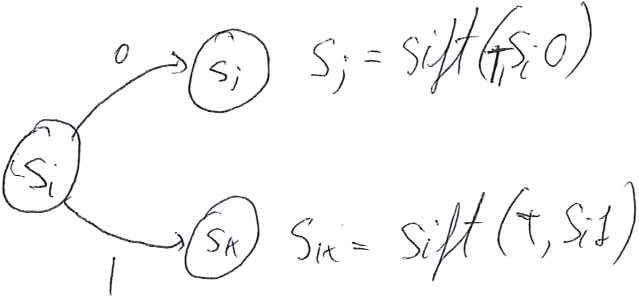 0
Sj Sj = sift(T, Si0)
Si
Sk Sk = sift(T, Si1)
1